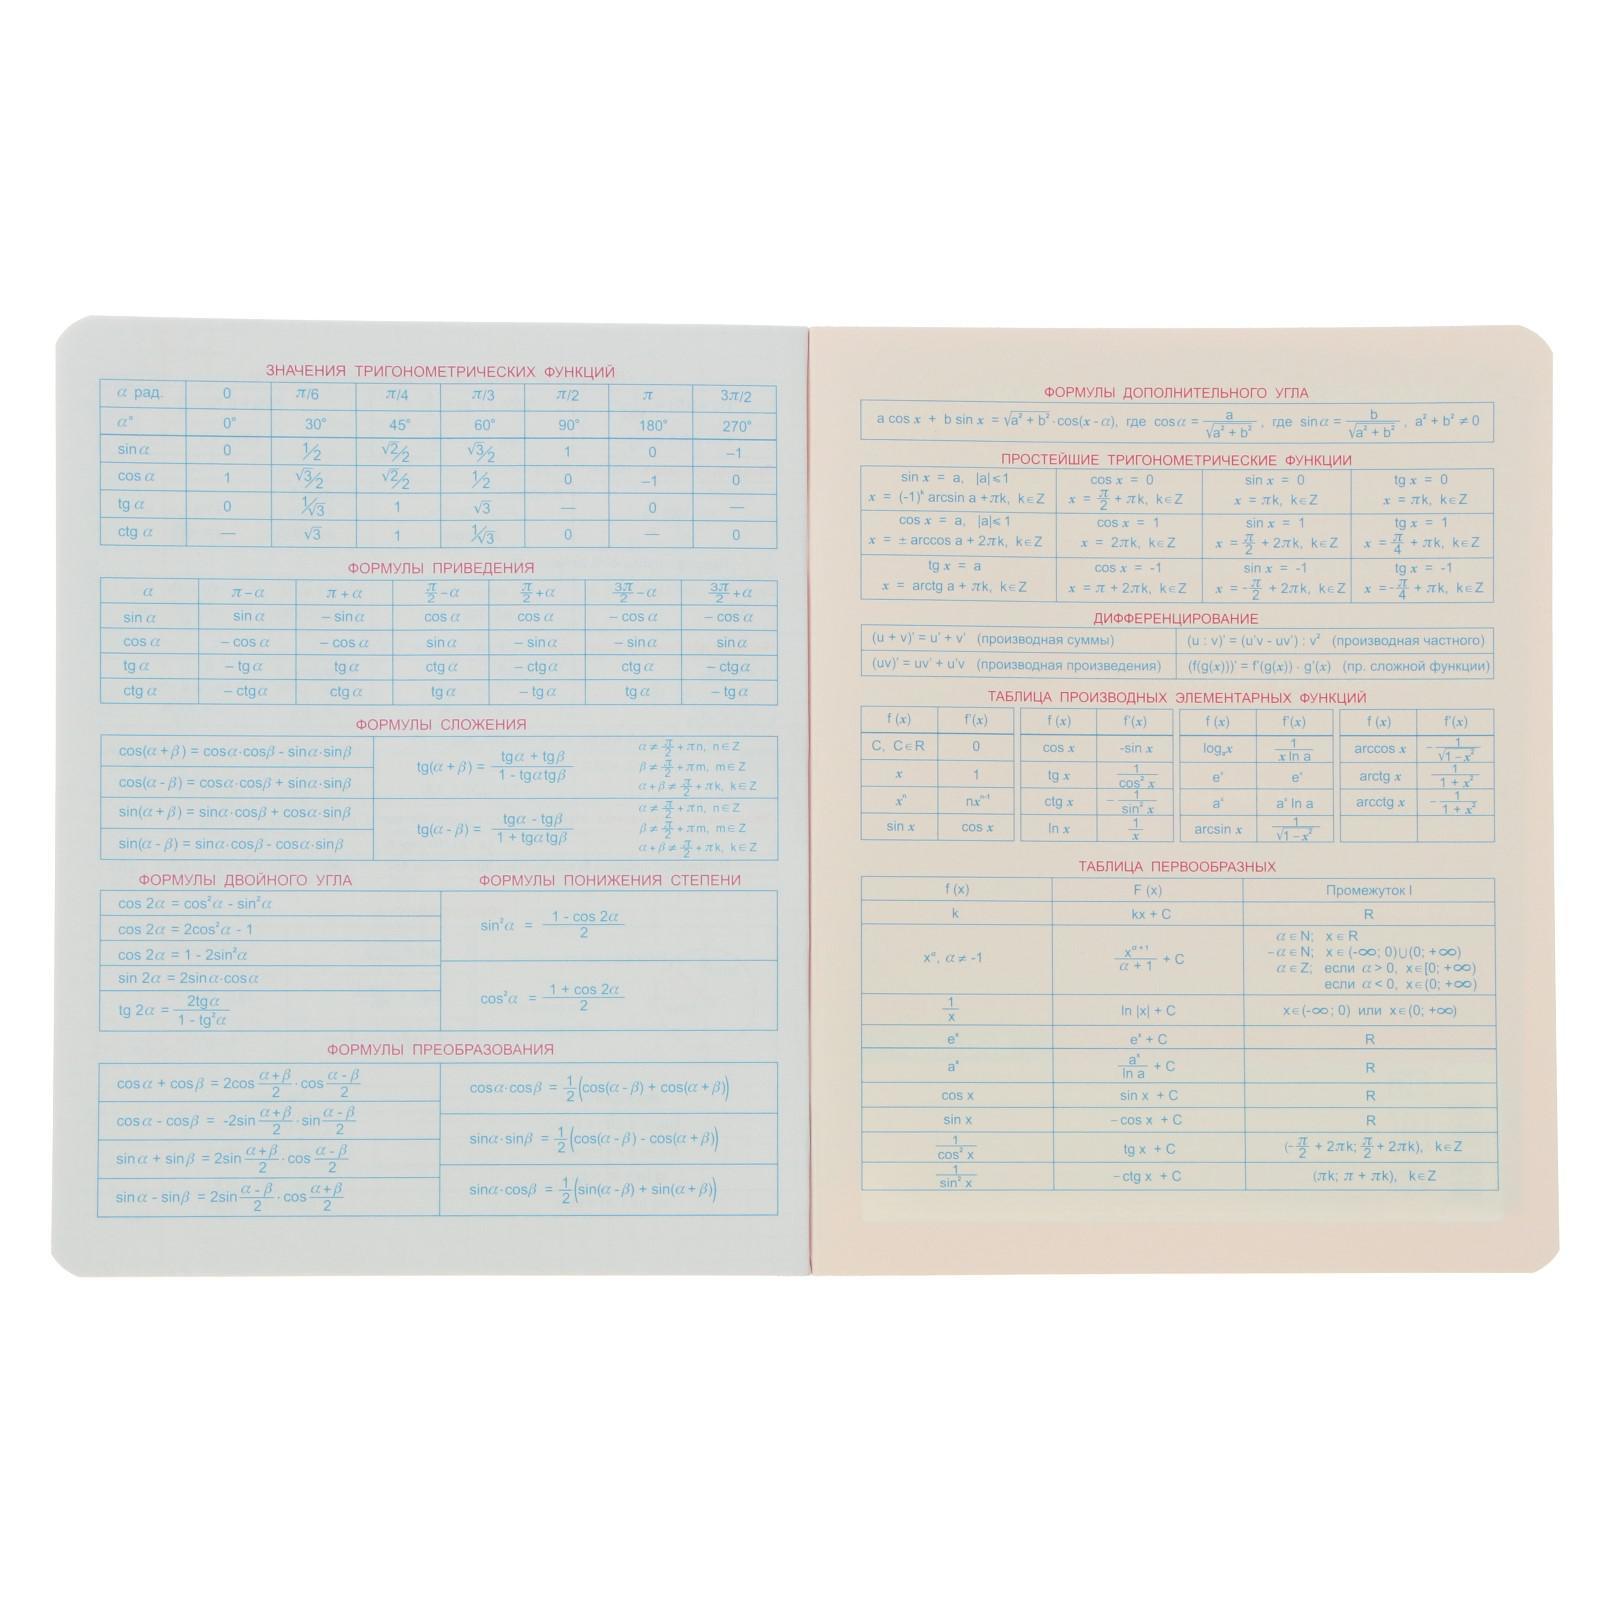 ЗНАЧЕНИЯ ТРИГОНОМЕТРИЧЕСКИХ ФУНКЦИЙ
α рад. 0 π/6 π/4 π/3 π/2 π 3π/2
α° 0° 30° 45° 60° 90° 180° 270°
sin α 0 1/2 √2/2 √3/2 1 0 –1
cos α 1 √3/2 √2/2 1/2 0 –1 0
tg α 0 1/√3 1 √3 — 0 —
ctg α — √3 1 1/√3 0 — 0
ФОРМУЛЫ ПРИВЕДЕНИЯ
α π – α π + α π/2 – α π/2 + α 3π/2 – α 3π/2 + α
sin α sin α – sin α cos α cos α – cos α – cos α
cos α – cos α – cos α sin α – sin α – sin α sin α
tg α – tg α tg α ctg α – ctg α ctg α – ctg α
ctg α – ctg α ctg α tg α – tg α tg α – tg α
ФОРМУЛЫ СЛОЖЕНИЯ
cos(α + β) = cosα·cosβ - sinα·sinβ
cos(α - β) = cosα·cosβ + sinα·sinβ
sin(α + β) = sinα·cosβ + cosα·sinβ
sin(α - β) = sinα·cosβ - cosα·sinβ
tg(α + β) = (tgα + tgβ)/(1 - tgαtgβ)
α ≠ π/2 + πn, n∈Z
β ≠ π/2 + πm, m∈Z
α + β ≠ π/2 + πk, k∈Z
tg(α - β) = (tgα - tgβ)/(1 + tgαtgβ)
α ≠ π/2 + πn, n∈Z
β ≠ π/2 + πm, m∈Z
α + β ≠ π/2 + πk, k∈Z
ФОРМУЛЫ ДВОЙНОГО УГЛА
cos 2α = cos²α - sin²α
cos 2α = 2cos²α - 1
cos 2α = 1 - 2sin²α
sin 2α = 2sinα·cosα
tg 2α = 2tgα/(1 - tg²α)
ФОРМУЛЫ ПОНИЖЕНИЯ СТЕПЕНИ
sin²α = (1 - cos 2α)/2
cos²α = (1 + cos 2α)/2
ФОРМУЛЫ ПРЕОБРАЗОВАНИЯ
cosα + cosβ = 2cos (α+β)/2 · cos (α-β)/2
cosα - cosβ = -2sin (α+β)/2 · sin (α-β)/2
sinα + sinβ = 2sin (α+β)/2 · cos (α-β)/2
sinα - sinβ = 2sin (α-β)/2 · cos (α+β)/2
cosα·cosβ = 1/2 (cos(α - β) + cos(α + β))
sinα·sinβ = 1/2 (cos(α - β) - cos(α + β))
sinα·cosβ = 1/2 (sin(α - β) + sin(α + β))
ФОРМУЛЫ ДОПОЛНИТЕЛЬНОГО УГЛА
a cos x + b sin x = √(a² + b²)·cos(x - α), где cosα = a/√(a² + b²), где sinα = b/√(a² + b²), a² + b² ≠ 0
ПРОСТЕЙШИЕ ТРИГОНОМЕТРИЧЕСКИЕ ФУНКЦИИ
sin x = a, |a|⩽1 cos x = 0 sin x = 0 tg x = 0
x = (-1)ᵏ arcsin a + πk, k∈Z x = π/2 + πk, k∈Z x = πk, k∈Z x = πk, k∈Z
cos x = a, |a|⩽1 cos x = 1 sin x = 1 tg x = 1
x = ± arccos a + 2πk, k∈Z x = 2πk, k∈Z x = π/2 + 2πk, k∈Z x = π/4 + πk, k∈Z
tg x = a cos x = -1 sin x = -1 tg x = -1
x = arctg a + πk, k∈Z x = π + 2πk, k∈Z x = -π/2 + 2πk, k∈Z x = -π/4 + πk, k∈Z
ДИФФЕРЕНЦИРОВАНИЕ
(u + v)' = u' + v' (производная суммы) (u : v)' = (u'v - uv') : v² (производная частного)
(uv)' = uv' + u'v (производная произведения) (f(g(x)))' = f'(g(x)) · g'(x) (пр. сложной функции)
ТАБЛИЦА ПРОИЗВОДНЫХ ЭЛЕМЕНТАРНЫХ ФУНКЦИЙ
f (x) f'(x) f (x) f'(x) f (x) f'(x) f (x) f'(x)
C, C∈R 0 cos x -sin x logₐx 1/(x ln a) arccos x -1/√(1–x²)
x 1 tg x 1/cos² x eˣ eˣ arctg x 1/(1 + x²)
xⁿ nxⁿ⁻¹ ctg x -1/sin² x aˣ aˣ ln a arcctg x -1/(1 + x²)
sin x cos x ln x 1/x arcsin x 1/√(1–x²)
ТАБЛИЦА ПЕРВООБРАЗНЫХ
f (x) F (x) Промежуток I
k kx + C R
x^α, α ≠ -1 x^(α+1)/(α + 1) + C α∈N; x∈R
–α∈N; x∈(-∞; 0)∪(0; +∞)
α∈Z; если α > 0, x∈[0; +∞)
если α < 0, x∈(0; +∞)
1/x ln |x| + C x∈(-∞; 0) или x∈(0; +∞)
eˣ eˣ + C R
aˣ aˣ/ln a + C R
cos x sin x + C R
sin x – cos x + C R
1/cos² x tg x + C (-π/2 + 2πk; π/2 + 2πk), k∈Z
1/sin² x – ctg x + C (πk; π + πk), k∈Z